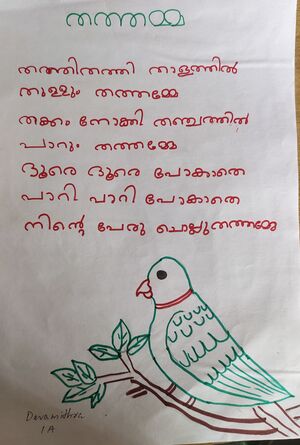 തത്തമ്മ
തത്തിതത്തി താളത്തിൽ
തുള്ളും തത്തമ്മേ
തക്കം നോക്കി തഞ്ചത്തിൽ
പാറും തത്തമ്മേ
ദൂരെ ദൂരെ പോകാതെ
പാറി പാറി പോകാതെ
നിന്റെ പേരു ചൊല്ലുതത്തമ്മേ
Devamithra
1 A